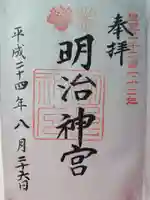 奉拝
明治神宮
平成二十四年八月二十六日